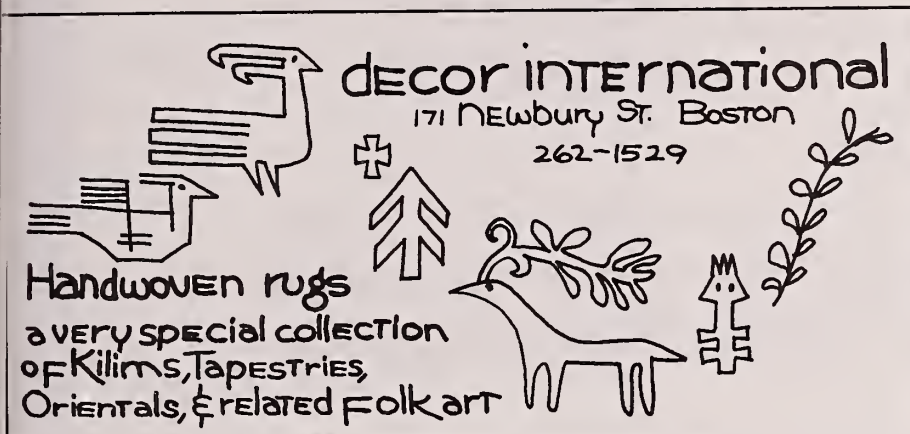 decor international
171 Newbury St. Boston
262-1529
Handwoven rugs
a very special collection
of Kilims, Tapestries,
Orientals, & related Folk art